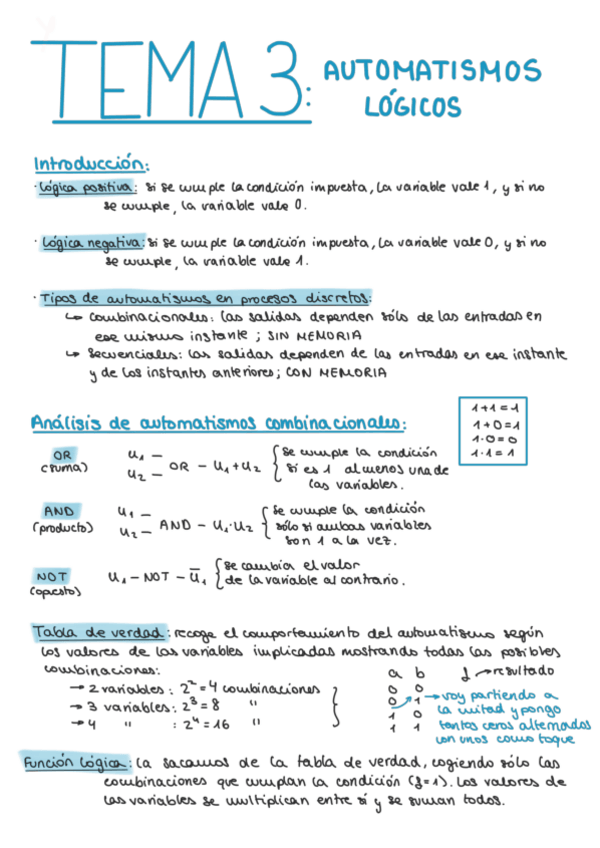 TEMA 3: AUTOMATISMOS
LÓGICOS
Introducción:
· Lógica positiva: si se cumple la condición impuesta, la variable vale 1, y si no
se cumple, la variable vale 0.
· Lógica negativa: si se cumple la condición impuesta, la variable vale 0, y si no
se cumple, la variable vale 1.
· Tipos de automatismos en procesos discretos:
↳ combinacionales: las salidas dependen sólo de las entradas en
ese mismo instante; SIN MEMORIA
↳ secuenciales: las salidas dependen de las entradas en ese instante
y de los instantes anteriores; CON MEMORIA
Análisis de automatismos combinacionales:
1+1=1
1+0=1
1·0=0
1·1=1
OR
(suma)
u₁ —
u₂ —
OR — u₁+u₂
{ se cumple la condición
si es 1 al menos una de
las variables.
AND
(producto)
u₁ —
u₂ —
AND — u₁·u₂
{ se cumple la condición
sólo si ambas variables
son 1 a la vez.
NOT
(opuesto)
u₁ — NOT — u̅₁
{ se cambia el valor
de la variable al contrario.
Tabla de verdad: recoge el comportamiento del automatismo según
los valores de las variables implicadas mostrando todas las posibles
combinaciones:
→ 2 variables: 2² = 4 combinaciones
→ 3 variables: 2³ = 8 "
→ 4 " : 2⁴ = 16 "
a b f → resultado
0 0
0 1
1 0
1 1
→ voy partiendo a
la mitad y pongo
tantos ceros alternados
con unos como toque
Función lógica: la sacamos de la tabla de verdad, cogiendo sólo las
combinaciones que cumplan la condición (f=1). Los valores de
las variables se multiplican entre sí y se suman todos.